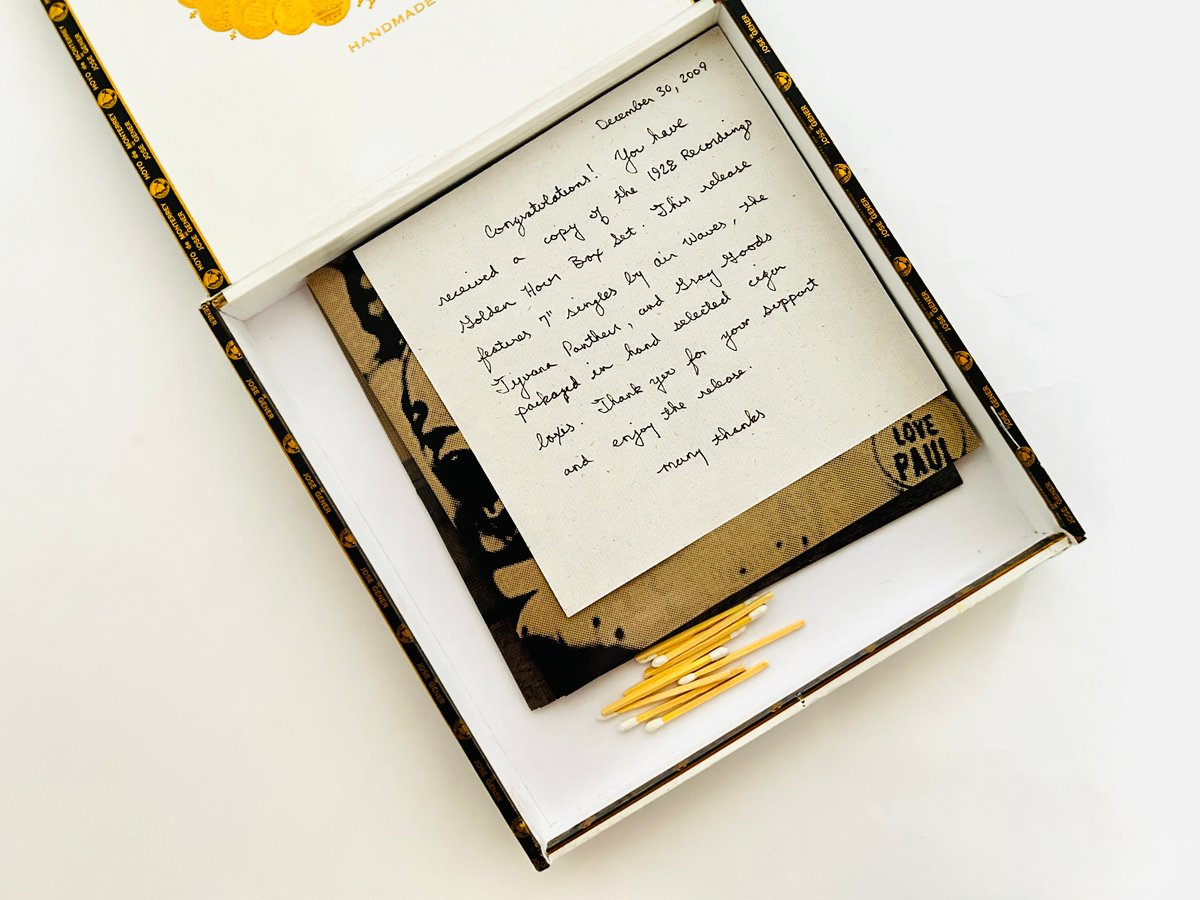 HANDMADE
December 30, 2009
Congratulations! You have
received a copy of the 1928 Recordings
Golden Hour Box Set. This release
features 7" singles by air Waves, the
Tyvana Panthers, and Gray Goods
packaged in hand selected cigar
boxes. Thank you for your support
and enjoy the release.
many thanks
LOVE
PAUL
HOYO de MONTERREY
JOSE GENER
HOYO de MONTERREY
JOSE GENER
HOYO de MONTERREY
JOSE GENER
GENER
JOSE GENER
JOSE GENER
JOSE GENER
JOSE GENER
JOSE GENER
JOSE GENER
JOSE GENER
JOSE GENER
JOSE GENER
JOSE GENER